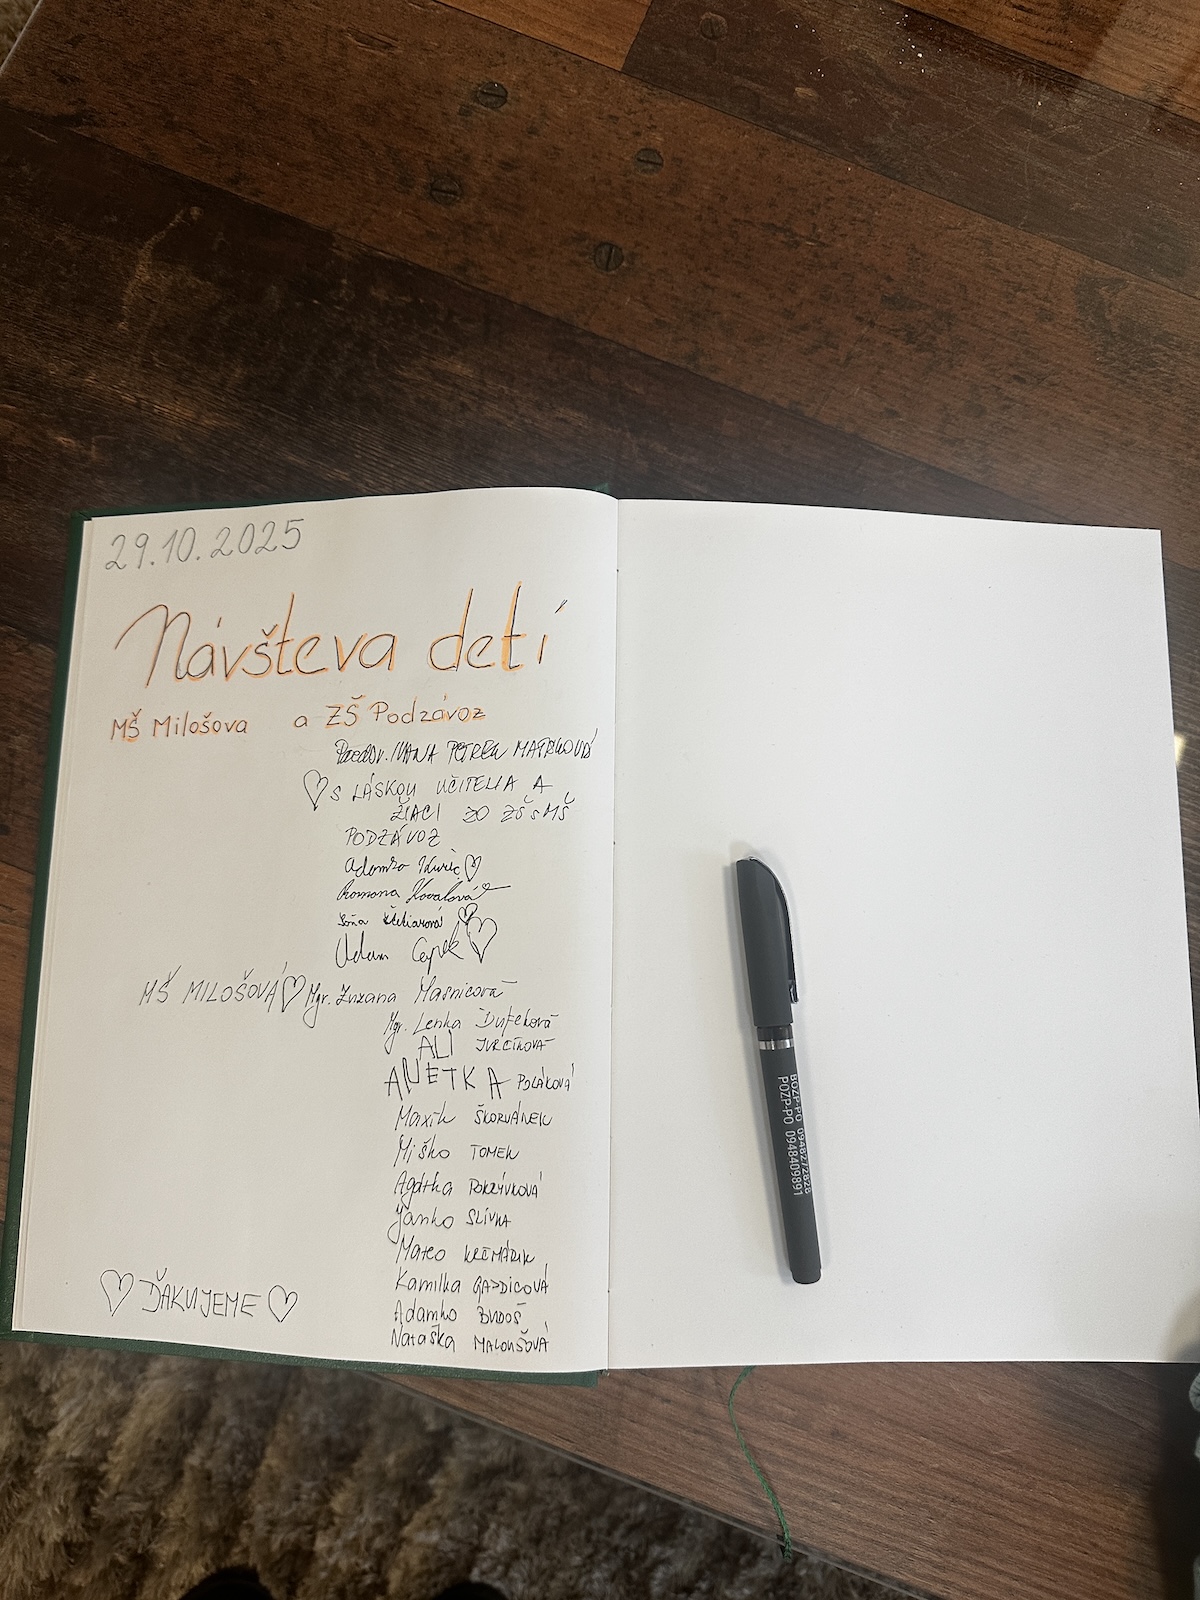 29.10.2025
Návšteva detí
MŠ Milošova a ZŠ Podzávoz
PaedDr. IVANA PETREK
♡ S LÁSKOU UČITELIA A
ŽIACI ZO ZŠ s MŠ
PODZÁVOZ
Adamko Kuric ♡
Romana Kovalová
Soňa
Adam Capek
MŠ MILOŠOVÁ ♡ Mgr. Zuzana Masnicová
Mgr. Lenka Ďuteková
ALI JURČÍKOVÁ
ANETKA POLÁKOVÁ
Maxík ŠKORVÁNEK
Miško TOMEK
Agátka POKRÝVKOVÁ
Janko SLÍVKA
Mateo KRČMÁRIK
Kamilka GAZDICOVÁ
♡ ĎAKUJEME ♡
Adamko BUDOŠ
Nataška MALOUŠOVÁ
BOZP-PO 0948272828
POZP-PO 0948409891